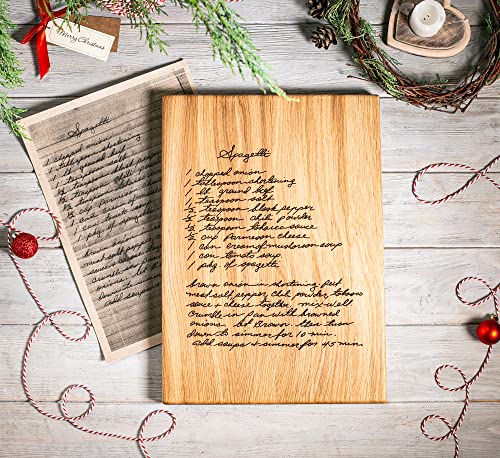 Merry Christmas
Spagetti
1 chopped onion
1 tablespoon shortening
1 lb ground beef
1 teaspoon salt
½ teaspoon black pepper
½ teaspoon chili powder
½ teaspoon tobasco sauce
½ cup parmesan cheese
1 can cream of mushroom soup
1 can tomato soup
1 pkg. of spagetti
brown onion in shortening put
meat salt pepper chili powder, tobasco
sauce + cheese together. mix well
crumble in pan with browned
onions. let brown. then turn
down to simmer for 10 min.
add soups + simmer for 45 min.
Spagetti
1 chopped onion